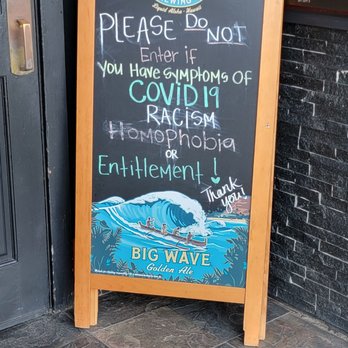 BREWING
Liquid Aloha - Hawaii
PLEASE Do NOT
Enter if
You Have Symptoms OF
COVID19
RACISM
Homophobia
OR
Entitlement!
Thank
you!
BIG WAVE
Golden Ale